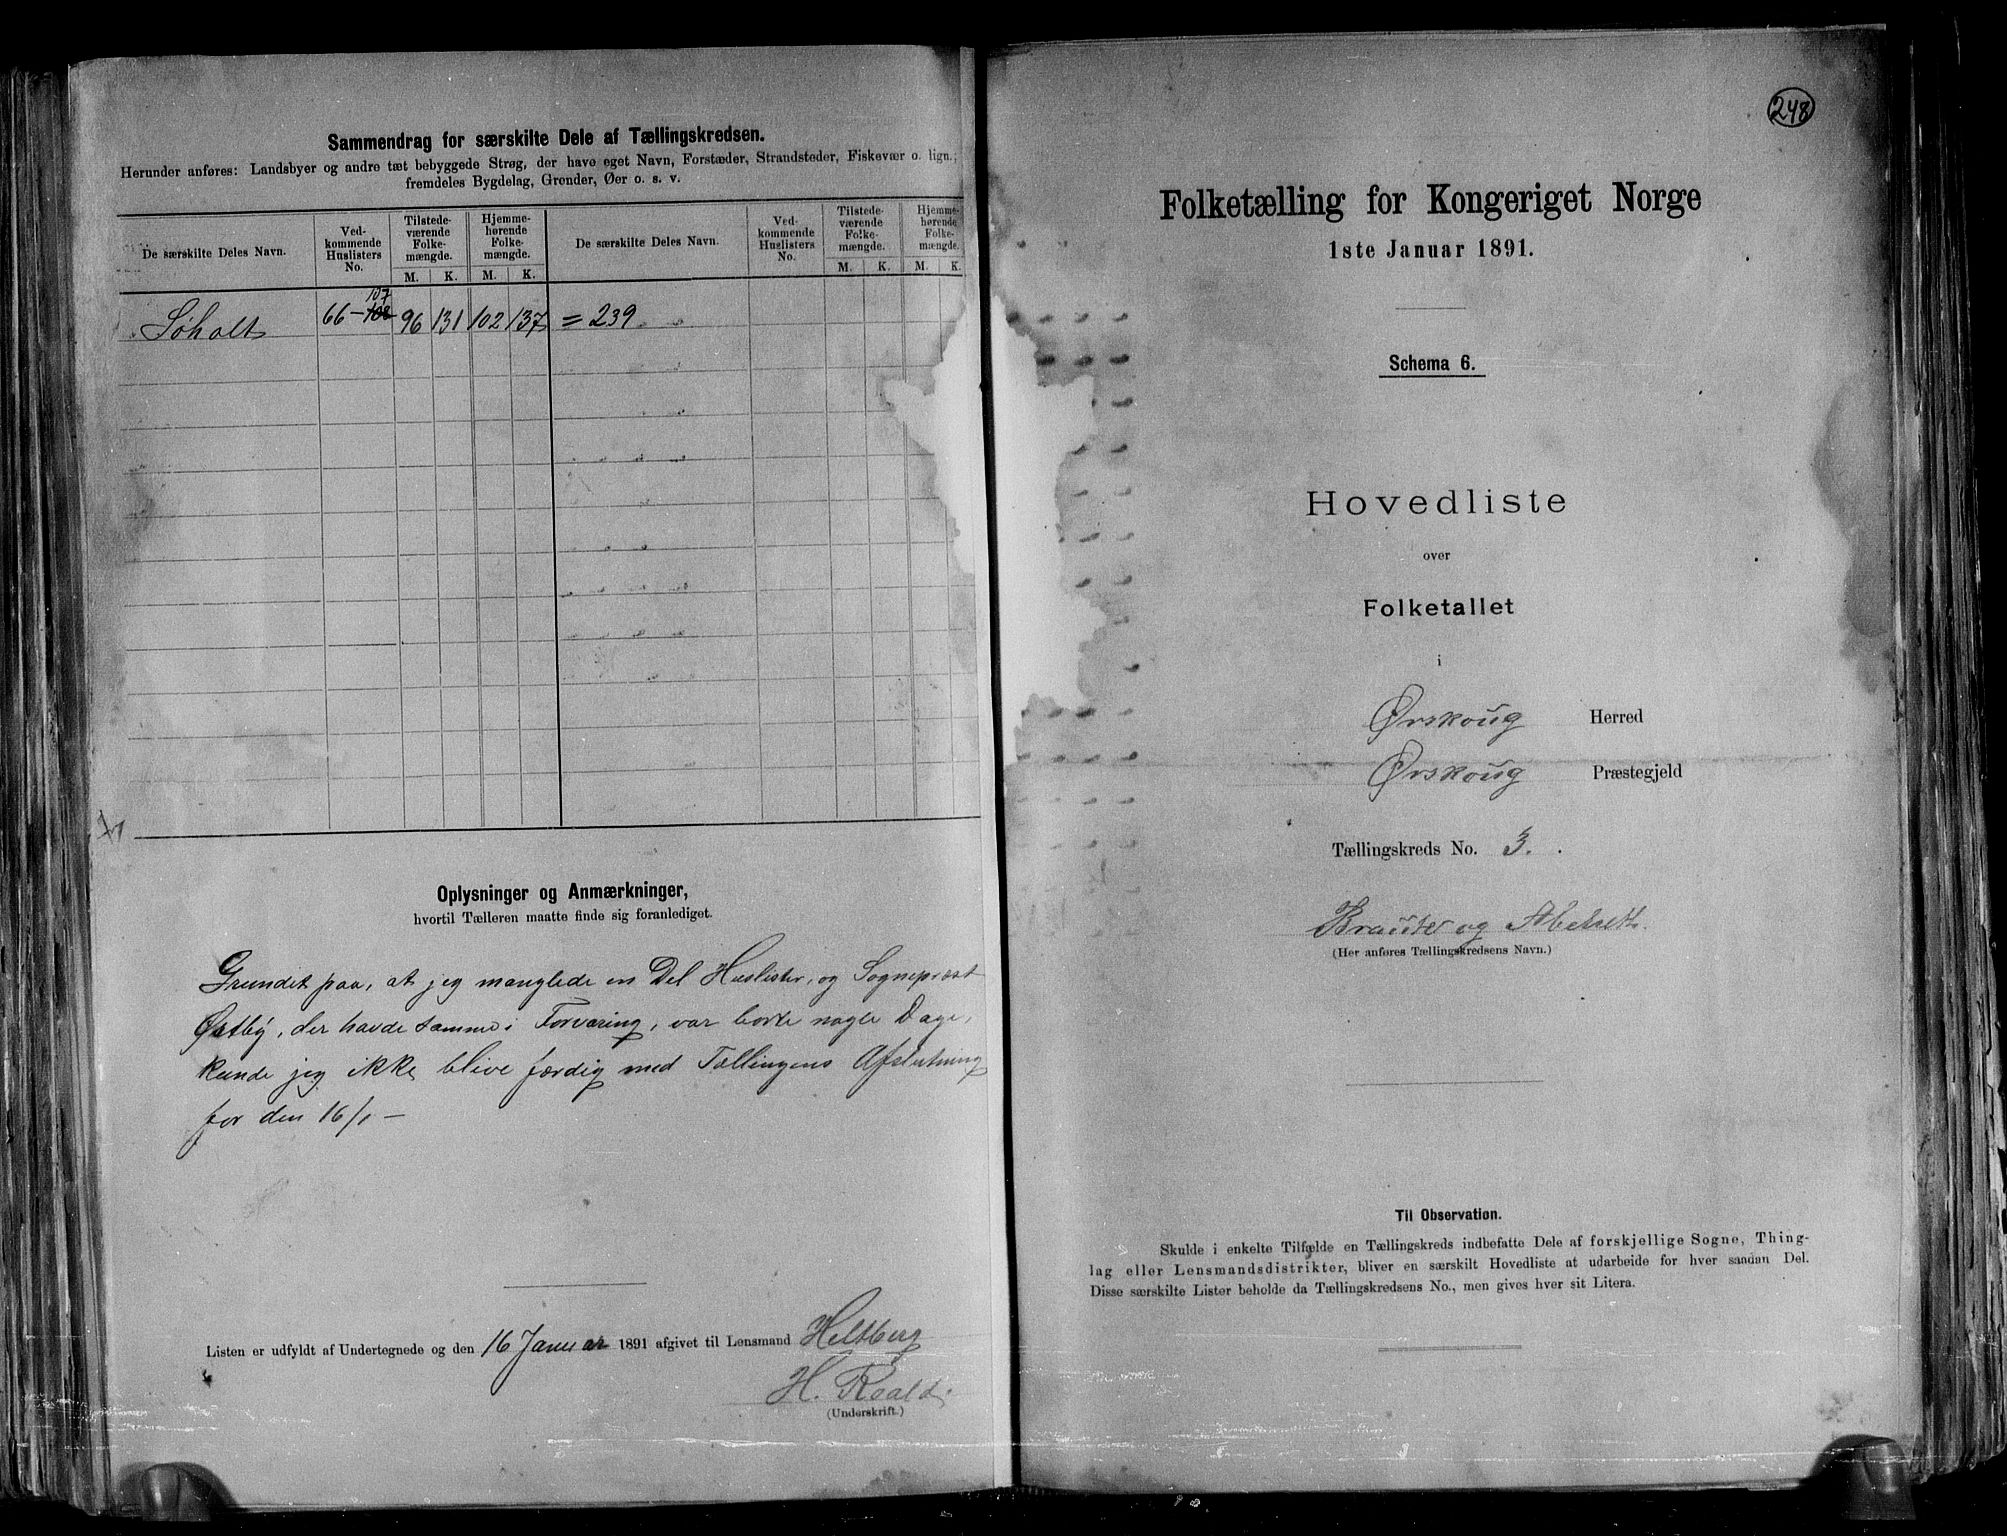 Sammendrag for særskilte Dele af Tællingskredsen.
Herunder anføres: Landsbyer og andre tæt bebyggede Strøg, der have eget Navn, Forstæder, Strandsteder, Fiskevær o. lign.;
fremdeles Bygdelag, Grender, Øer o. s. v.
De særskilte Deles Navn. Ved-kommende Huslisters No. Tilstede-værende Folke-mængde. Hjemme-hørende Folke-mængde. De særskilte Deles Navn. Ved-kommende Huslisters No. Tilstede-værende Folke-mængde. Hjemme-hørende Folke-mængde.
M. K. M. K. M. K. M. K.
107
Søholt 66-108 96 131 102 137 = 239
Oplysninger og Anmærkninger,
hvortil Tælleren maatte finde sig foranlediget.
Grundet paa, at jeg manglede en Del Huslister, og Sogneprest
Østby, der havde samme i Forvaring, var borte nogle Dage,
kunde jeg ikke blive færdig med Tællingens Afslutning
før den 16/1 –
Listen er udfyldt af Undertegnede og den 16 Januar 1891 afgivet til Lensmand Heltberg
H. Roald.
(Underskrift.)
248
Folketælling for Kongeriget Norge
1ste Januar 1891.
Schema 6.
Hovedliste
over
Folketallet
i
Ørskoug Herred
Ørskoug Præstegjeld
Tællingskreds No. 3.
Brauter og Abelseth.
(Her anføres Tællingskredsens Navn.)
Til Observation.
Skulde i enkelte Tilfælde en Tællingskreds indbefatte Dele af forskjellige Sogne, Thing-
lag eller Lensmandsdistrikter, bliver en særskilt Hovedliste at udarbeide for hver saadan Del.
Disse særskilte Lister beholde da Tællingskredsens No., men gives hver sit Litera.